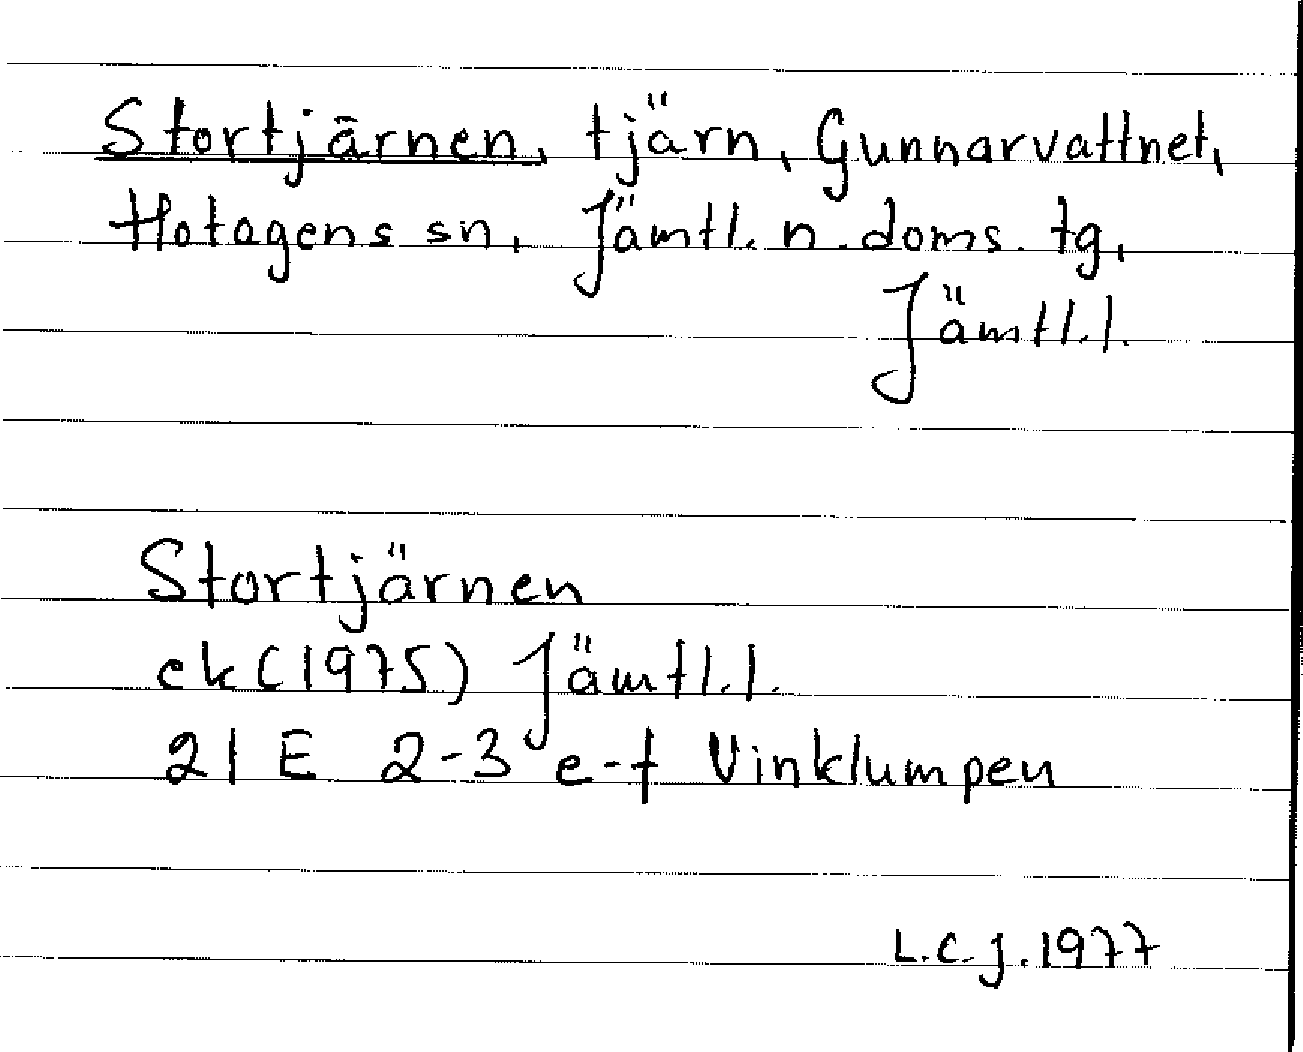 Stortjärnen, tjärn, Gunnarvattnet,
Hotagens sn, Jämtl. n. doms. tg,
Jämtl. l.
Stortjärnen
ek (1975) Jämtl. l.
21 E 2-3 e-f Vinklumpen
L.C.J. 1977